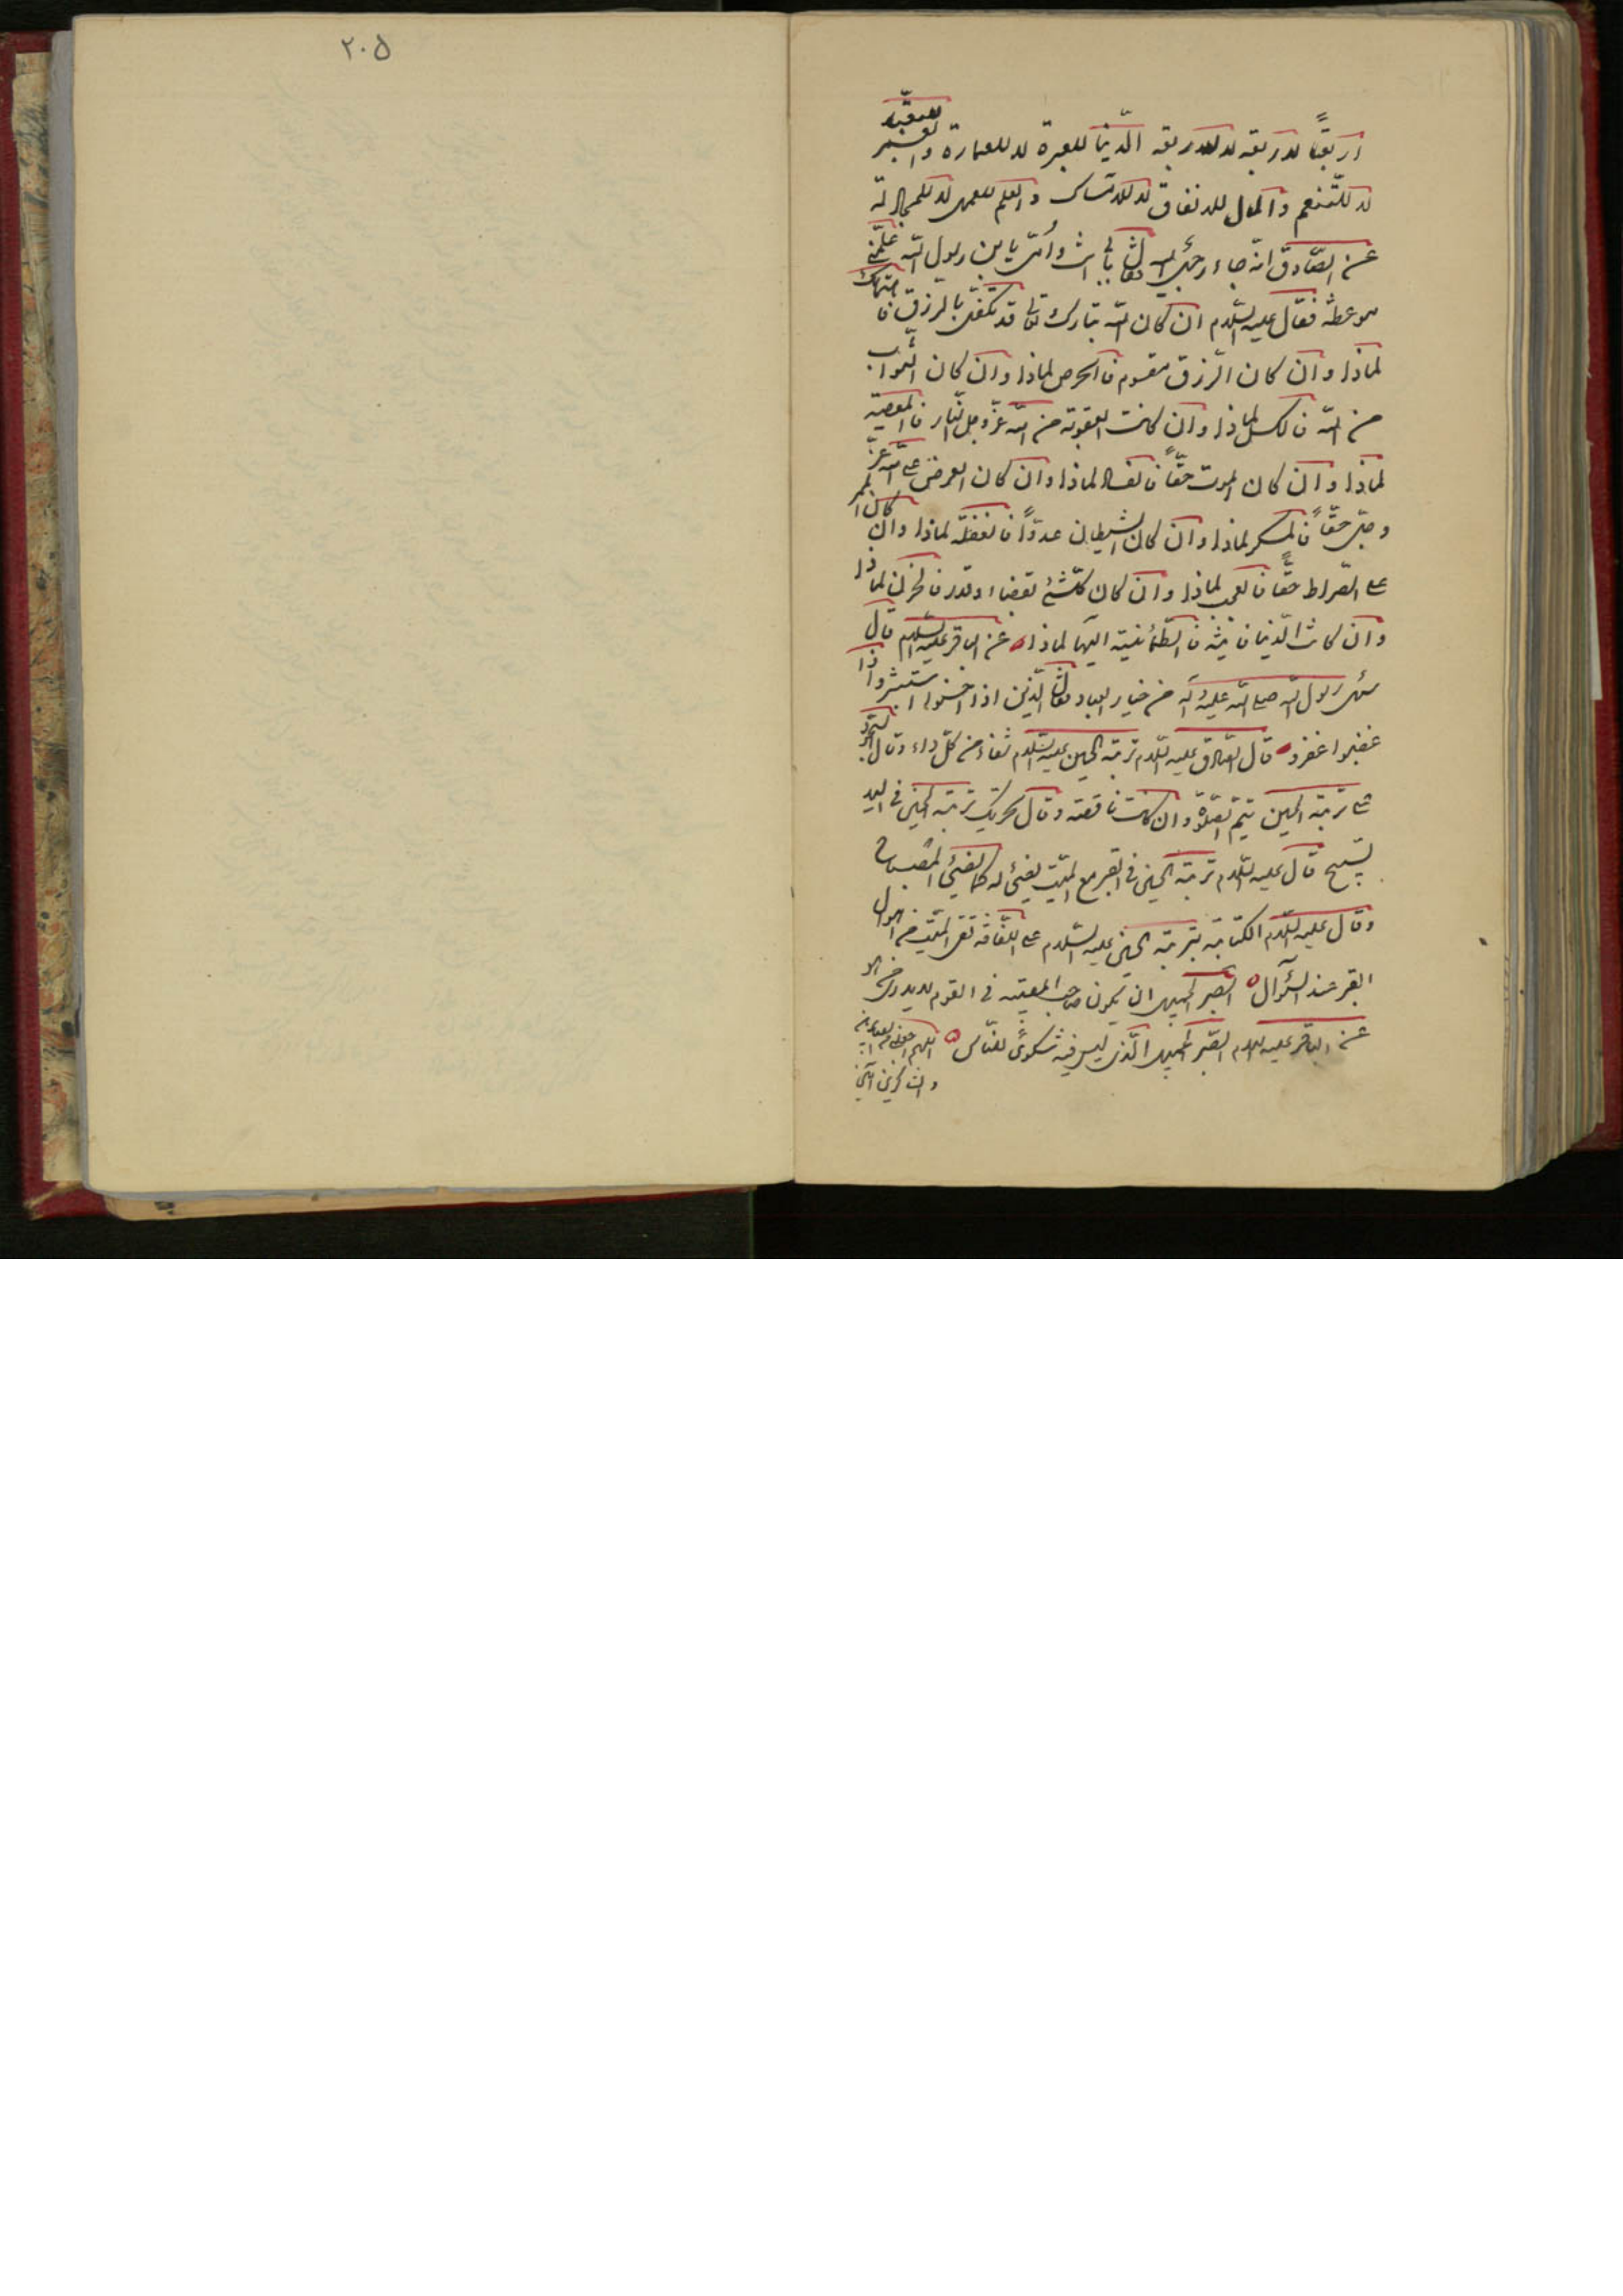 ٢٠٥
اربعًا لاربعة لا لاربعة الدّنيا للعبرة لا للعمارة و
لا للتّنعم والمال للانفاق لا للامساك والعلم للعمل لا للمجادلة
عن الصّادق انّه جاء رجل اليه فقال بأبي انت وأمّي يابن رسول اللّه علّمني
موعظة فقال عليه السّلام ان كان اللّه تبارك وتعالى قد تكفّل بالرزق فاهتمامك
لماذا وان كان الرّزق مقسوم فالحرص لماذا وان كان الثّواب
من اللّه فالكسل لماذا وان كانت العقوبة من اللّه عزّ وجل النّار فالمعصية
لماذا وان كان الموت حقّاً فالفرح لماذا وان كان العرض على اللّه عزّ
وجلّ حقّاً فالمكر لماذا وان كان الشيطان عدوّاً فالغفلة لماذا وان كان الممر
على الصّراط حقّاً فالعجب لماذا وان كان كلّ شئ بقضاء وقدر فالحزن لماذا
وان كانت الدّنيا فانية فالطّمأنينة اليها لماذا عن الباقر عليه السّلام قال
سئل رسول اللّه صلى اللّه عليه وآله من خيار العباد فقال الّذين اذا احسنوا استبشروا واذا
غضبوا غفروا قال الصّادق عليه السّلام تربة الحسين عليه السّلام شفاء من كلّ داء وقال السّجود
على تربة الحسين يتمّ الصّلوة وان كانت ناقصة وقال تحريك تربة الحسين في اليد
تسبيح قال عليه السّلام تربة الحسين في القبر مع الميّت يضئ له كما يضئ المصباح
وقال عليه السّلام الكتابة بتربة الحسين عليه السّلام على اللّفافة تقي الميّت من اهوال
القبر عند السّؤال الصبر الجميل ان يكون صاحب المصيبة في القوم لا يدرى من هو
عن الباقر عليه السلام الصّبر الجميل الّذي ليس فيه شكوىً للنّاس اللهم اجعلني من